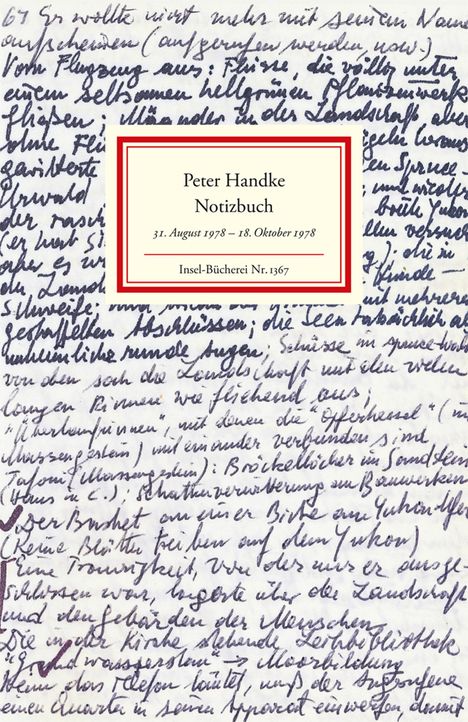 64 Er wollte nicht mehr mit seinem Namen
aufscheinen (aufgerufen werden, usw.)
Vom Flugzeug aus: Flüsse, die völlig unter
einem seltsamen hellgrünen Pflanzenwerk
fließen; Mäander in der Landschaft, aber
ohne Flü
geln heraus
gewitterte
en Spruce-
Urwald
und wieder
der rasch
breite Yukon
(er hat Si
aber es w
); die in
die Lands
Peter Handke
Notizbuch
31. August 1978 – 18. Oktober 1978
Insel-Bücherei Nr. 1367
Schweife;
mit mehreren
gestaffelten Abschlüssen; die Seen tatsächlich als
unheimliche runde Augen; Schüsse im Spruce-Wald
von oben sah die Landschaft mit den vielen
langen Rinnen wie fliehend aus;
"Überlaufrinnen", mit denen die "Opferkessel" (im
Massengestein) miteinander verbunden sind
Tafoni (Massengestein): Bröckellöcher im Sandstein
(Haus in C.); Schattenverwitterung an Bauwerken
Der Basket an einer Birke am Yukon-Ufer
(Keine Blätter treiben auf dem Yukon)
Eine Traurigkeit, von der nur er ausge-
schlossen war, lagerte über der Landschaft
und den Gebärden der Menschen
Die in der Kirche stehende Leihbibliothek
"Grundwasserstau" → Moorbildung
Wenn das Telefon läutet, muß der Angerufene
einen Quarter in seinen Apparat einwerfen, damit